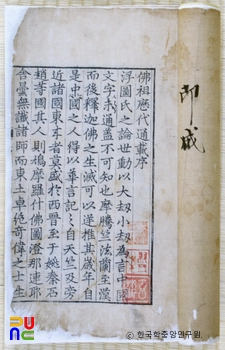 佛祖歷代通載序
浮圖氏之論世動以大劫小劫為言中國
文字未通蓋不可知也摩騰竺法蘭至漢
而後釋迦佛之生滅可以逆推其歲年自
是中國之人得以華言記之自天竺及旁
近諸國東來者莫盛於西晉至于姚秦石
趙等國其人則鳩摩羅什佛圖澄那連耶
舍曇無識諸師而東土卓絕奇偉之士生
印成
PUNC
© 한국학중앙연구원